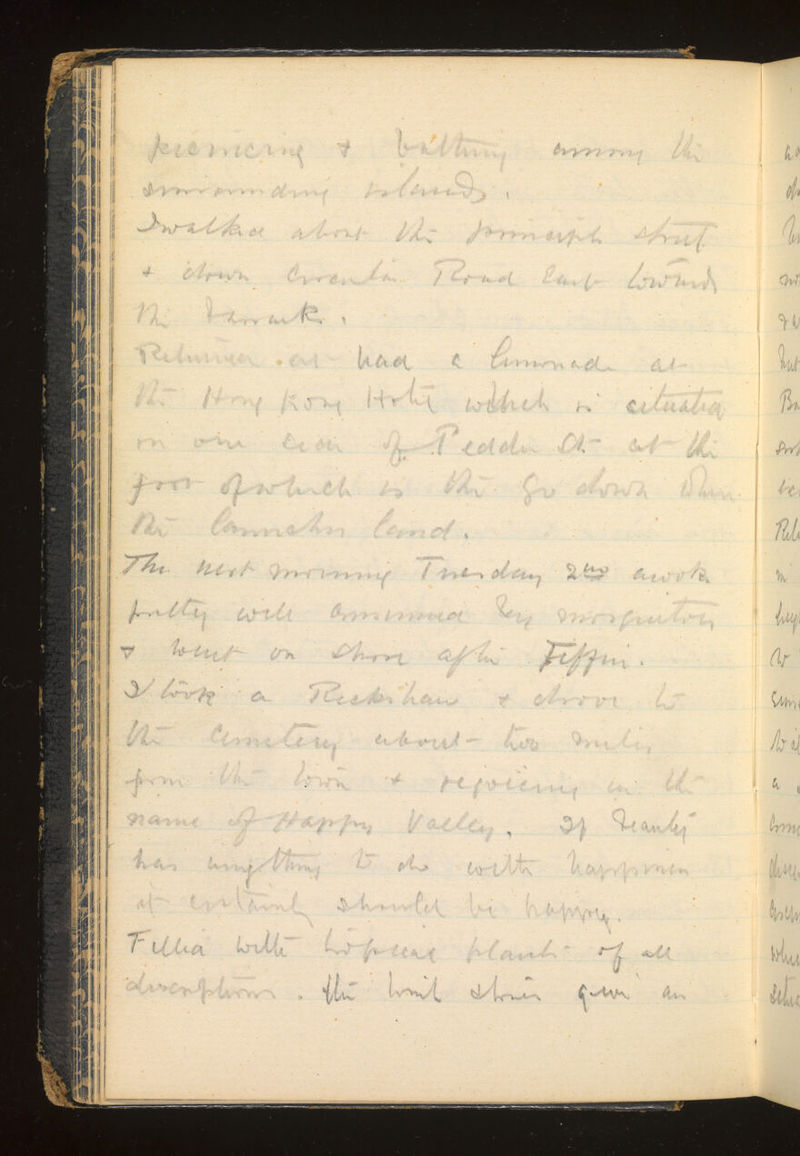 picnicing & bathing among the
surrounding islands.
I walked about the principle street
& down Circular Road East towards
the barracks.
Returned at had a lemonade at
the Hong Kong Hotel which is situated
on one side of Pedder St at the
foot of which is the Go down when
the launches land.
The next morning Tuesday 2nd awoke
pretty well consumed by mosquitoes
& went on shore after Tiffin.
I took a Rickshaw & drove to
the Cemetery about two miles
from the town & rejoicing in the
name of Happy Valley. If beauty
has anything to do with happiness
it certainly should be happy.
Filled with tropical plants of all
descriptions. the tomb stones give an